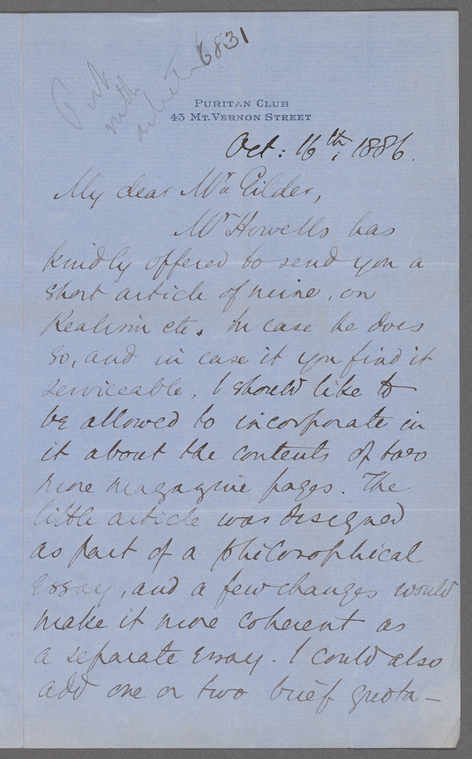 6831
Put
with
article
PURITAN CLUB
43 MT. VERNON STREET
Oct: 16th, 1886.
My dear Mr Gilder,
Mr Howells has
kindly offered to send you a
short article of mine, on
Realism etc. In case he does
so, and in case it you find it
serviceable, I should like to
be allowed to incorporate in
it about the contents of two
more magazine pages. The
little article was designed
as part of a philosophical
essay, and a few changes would
make it more coherent as
a separate essay. I could also
add one or two brief quota-